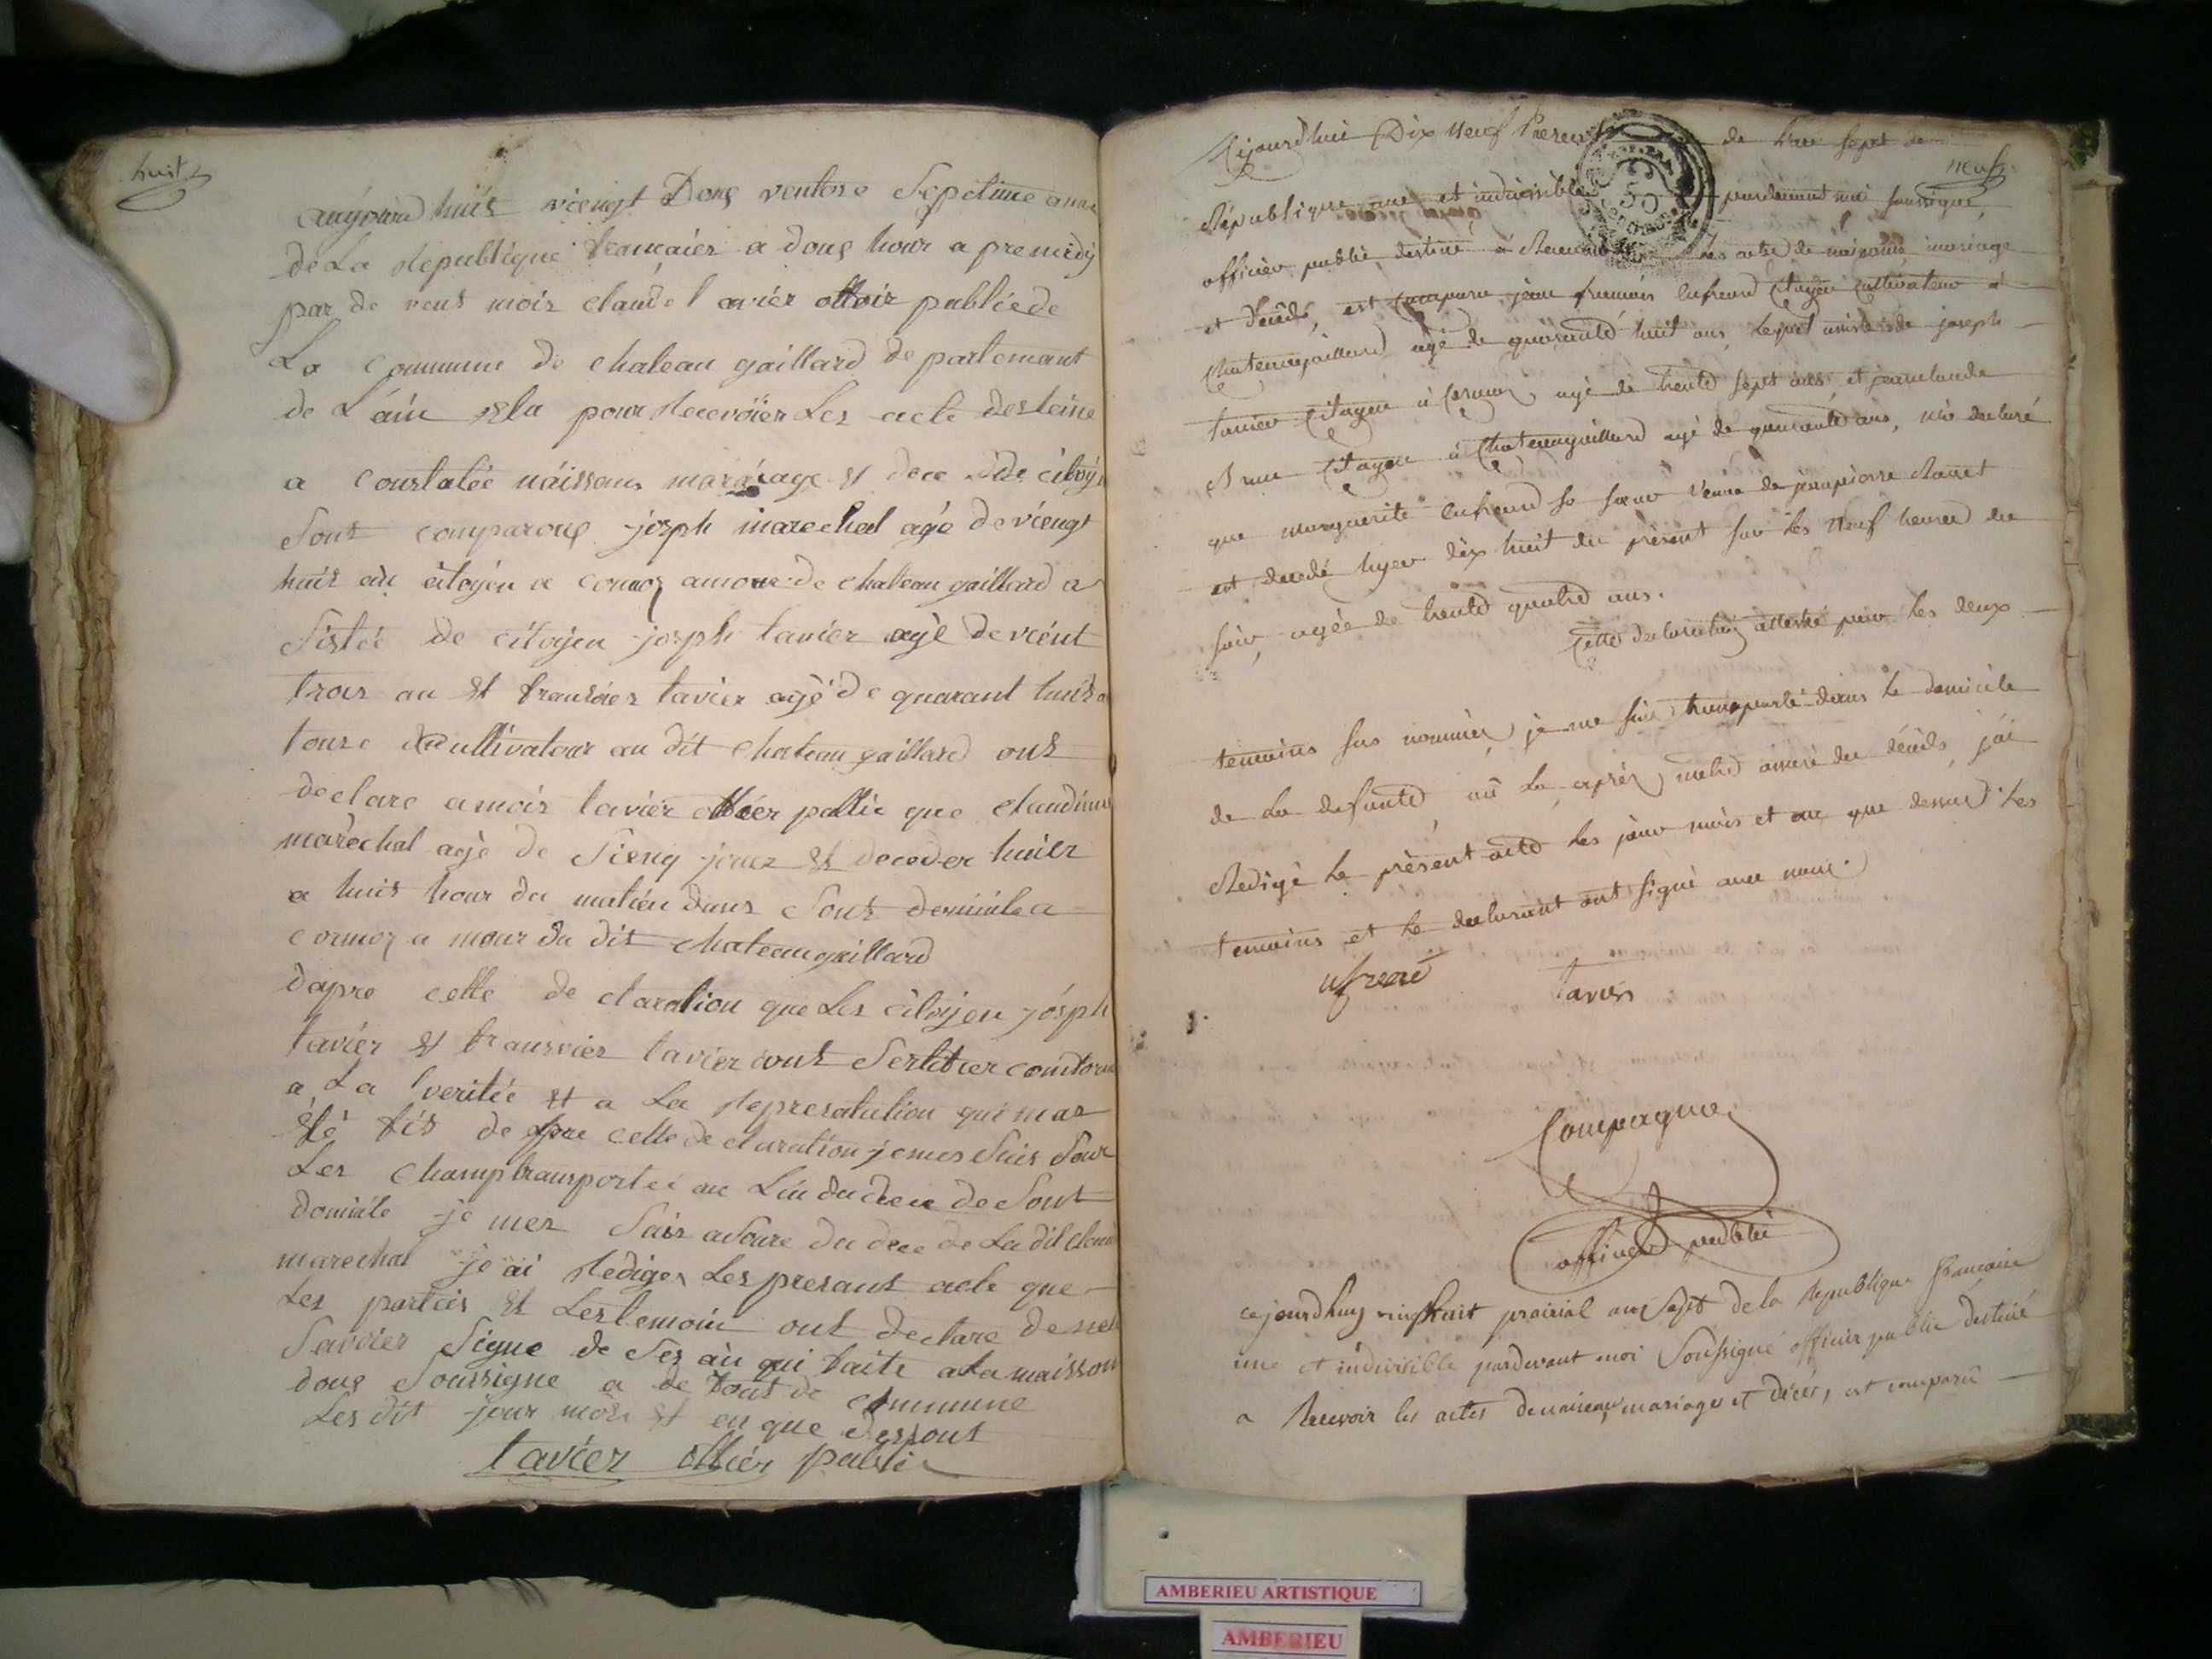 huit
aujourd huis viengt Doug ventose Sepetime anné
de La Republique francaiez a doug hour a premidÿ
par de vent moiz claude tavier ottoir publiéde
La Commune de Chateau gaillard de partemant
de L'ain pour Recevoïer Les acte desteine
a Constatée náissans maraiage et dece de citoÿ
Sont comparoug joseph marechal agé de viengt
huis an citoÿen a cormoz amour de chateau gaillard a
Sistée de citoÿen joseph tavier agé de vient
trois an et fransoiez tavier agé de quarant huis a
tous deux cultivatour au dit Chateau gaillard ont
declare a mois tavier ottier pallic que claudine
marechal agé de Sieng jour et deceder huier
a huis hour du matieu dans Sont domicile a
cormoz a mour du dit chateaugaillard
dapre cette de claration que Les citoÿen joseph
tavier et fransoiez tavier ont Sertitier comtorme
a La veritée et a La Represatation qui mas
été fis de apre cette de claration je mes Suis Sour
Les Champ transportée au Liu du dece de Sont
domicile je mes Suis asoure du dece de La dit claud
marechal je ai Rediger Les presant acte que
Les partiés et Les temoin ont declare de ne
Savoier Signe de Ses au qui faite a La maisson
doug Soussigne a de tout de Commune
Les dit jour mois et en que dessout
tavier ottier public
neuf
Cejourdhui Dix neuf Prer de L'an sept de
République une et indivisible pardevant moi soussigné
officier public destiné à Recevoir Les actes de naissance mariage
et décés, est comparu jean francois Enfreard citoyen cultivateur à
Chateaugaillard agé de quarante huit ans, Lequel assisté de joseph
tavier Citoyen à Cormoz agé de trente sept ans et jeanclaude
Brun Citoyen à Chateaugaillard agé de quarante ans, m'a declaré
que marguerite Enfreard sa sœur veuve de jeanpierre Ramet
est decedé hyer dix huit du présent sur les Neuf heures du
soir, agée de trente quatre ans.
Cette declaration attesté par les deux
temoins sus nommés, je me suis transporté dans le domicile
de la defunte, où La, après, metre assuré du décéds, j'ai
Redigé le présent acte les jour mois et an que dessus Les
temoins et le declarant ont signé avec nous.
nfreard tavier
Compagnon
officier public
cejourdhuy vingthuit prairial an Sept de la Republique francaise
une et indivisible pardevant moi Soussigné officier public destiné
a Recevoir les actes de naissance, mariage et décés, est comparu
AMBERIEU ARTISTIQUE
AMBERIEU